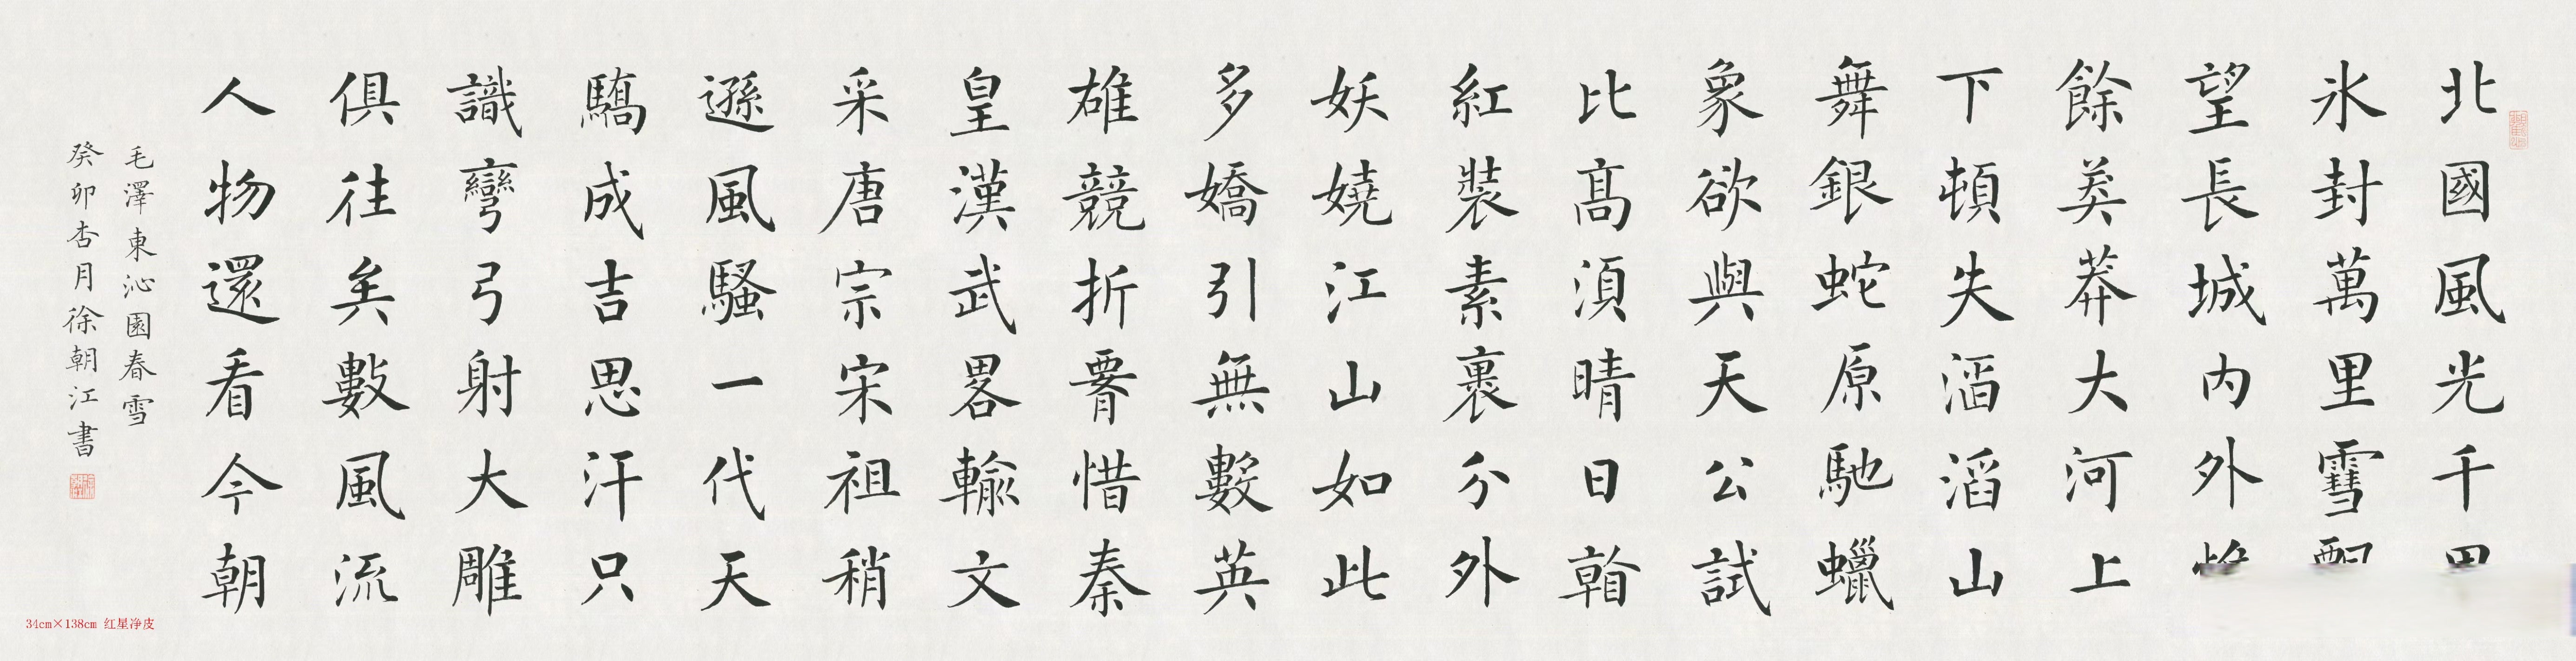 北國風光千
氷封萬里雪
望長城内外
餘莫莽大河上
下頓失滔滔山
舞銀蛇原馳蠟
象欲與天公試
比髙須晴日看
紅裝素裹分外
妖嬈江山如此
多嬌引無數英
雄競折腰惜秦
皇漢武畧輸文
采唐宗宋祖稍
遜風騷一代天
驕成吉思汗只
識彎弓射大雕
俱往矣數風流
人物還看今朝
毛澤東沁園春雪
癸卯杏月徐朝江書
34cm×138cm 红星净皮